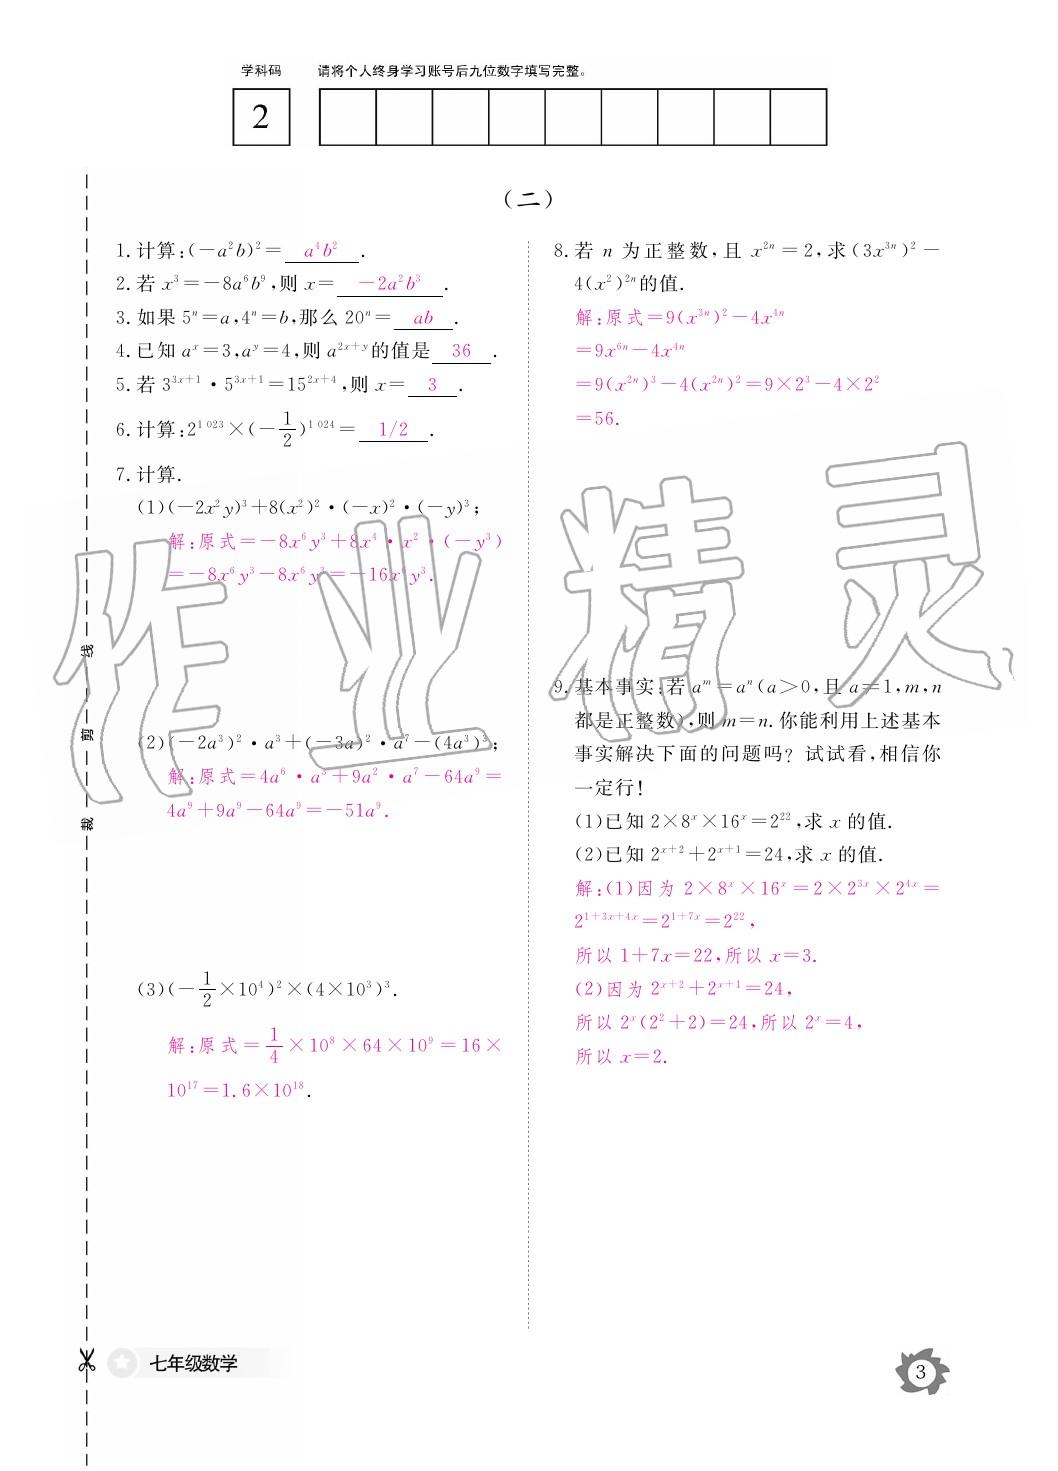 学科码 请将个人终身学习账号后九位数字填写完整。
2
(二)
1. 计算:(-a²b)²= a⁴b² .
2. 若 x³=-8a⁶b⁹,则 x= -2a²b³ .
3. 如果 5ⁿ=a,4ⁿ=b,那么 20ⁿ= ab .
4. 已知 aˣ=3,aʸ=4,则 a²ˣ⁺ʸ的值是 36 .
5. 若 3³ˣ⁺¹·5³ˣ⁺¹=15²ˣ⁺⁴,则 x= 3 .
6. 计算:2¹ ⁰²³×(-1/2)¹ ⁰²⁴= 1/2 .
7. 计算.
(1)(-2x²y)³+8(x²)²·(-x)²·(-y)³;
解:原式=-8x⁶y³+8x⁴·x²·(-y³)
=-8x⁶y³-8x⁶y³=-16x⁶y³.
(2)(-2a³)²·a³+(-3a)²·a⁷-(4a³)³;
解:原式=4a⁶·a³+9a²·a⁷-64a⁹=
4a⁹+9a⁹-64a⁹=-51a⁹.
(3)(-1/2×10⁴)²×(4×10³)³.
解:原式=1/4×10⁸×64×10⁹=16×
10¹⁷=1.6×10¹⁸.
8. 若 n 为正整数,且 x²ⁿ=2,求(3x³ⁿ)²-
4(x²)²ⁿ的值.
解:原式=9(x³ⁿ)²-4x⁴ⁿ
=9x⁶ⁿ-4x⁴ⁿ
=9(x²ⁿ)³-4(x²ⁿ)²=9×2³-4×2²
=56.
9. 基本事实:若 aᵐ=aⁿ(a>0,且 a≠1,m,n
都是正整数),则 m=n.你能利用上述基本
事实解决下面的问题吗? 试试看,相信你
一定行!
(1)已知 2×8ˣ×16ˣ=2²²,求 x 的值.
(2)已知 2ˣ⁺²+2ˣ⁺¹=24,求 x 的值.
解:(1)因为 2×8ˣ×16ˣ=2×2³ˣ×2⁴ˣ=
2¹⁺³ˣ⁺⁴ˣ=2¹⁺⁷ˣ=2²²,
所以 1+7x=22,所以 x=3.
(2)因为 2ˣ⁺²+2ˣ⁺¹=24,
所以 2ˣ(2²+2)=24,所以 2ˣ=4,
所以 x=2.
线
剪
裁
作业精灵
七年级数学
3